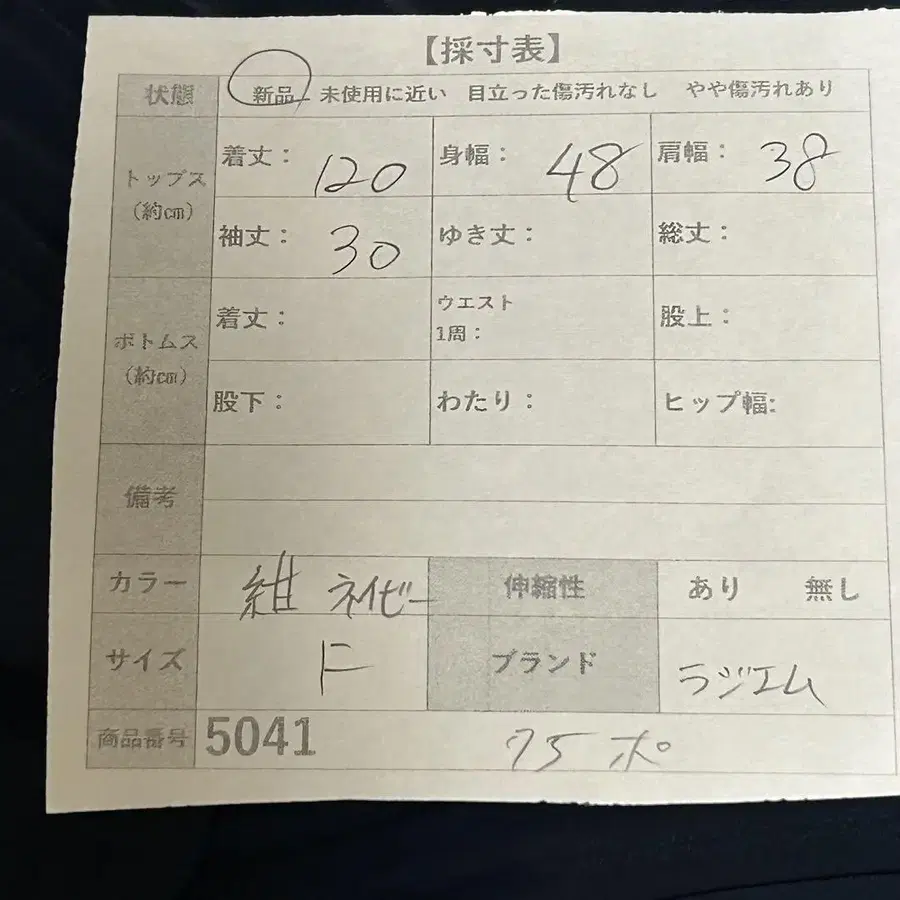 【採寸表】
状態 新品 未使用に近い 目立った傷汚れなし やや傷汚れあり
トップス (約cm) 着丈: 120 身幅: 48 肩幅: 38
袖丈: 30 ゆき丈: 総丈:
ボトムス (約cm) 着丈: ウエスト 1周: 股上:
股下: わたり: ヒップ幅:
備考
カラー 紺 ネイビー 伸縮性 あり 無し
サイズ F ブランド ラジエム
商品番号 5041 75 ポ